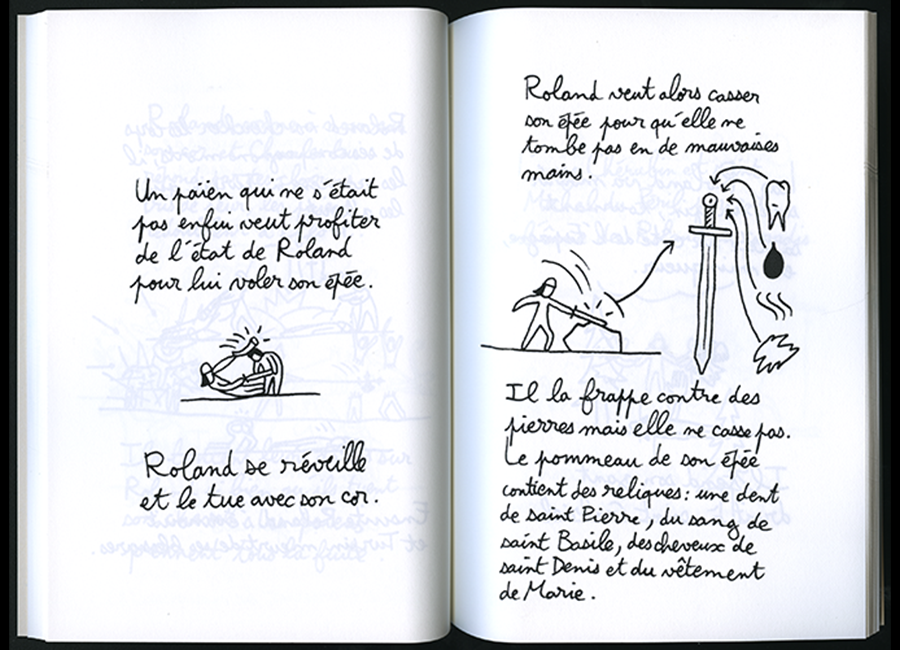 Un païen qui ne s'était
pas enfui veut profiter
de l'état de Roland
pour lui voler son épée.
Roland se réveille
et le tue avec son cor.
Roland veut alors casser
son épée pour qu'elle ne
tombe pas en de mauvaises
mains.
Il la frappe contre des
pierres mais elle ne casse pas.
Le pommeau de son épée
contient des reliques : une dent
de saint Pierre, du sang de
saint Basile, des cheveux de
saint Denis et du vêtement
de Marie.